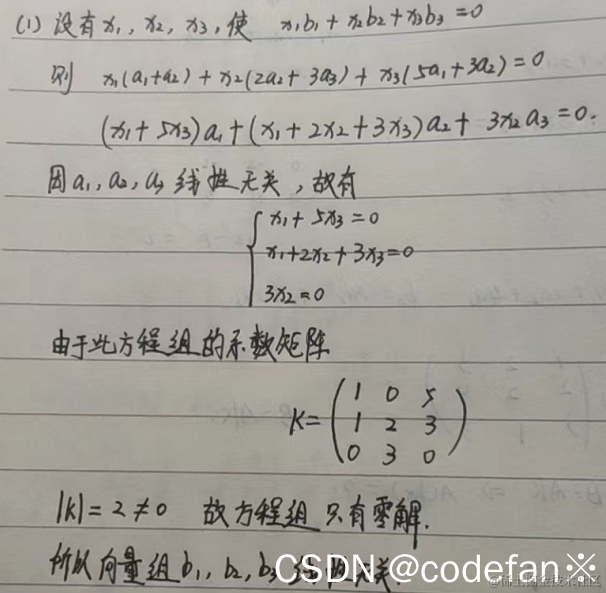 (1) 设有x₁, x₂, x₃, 使 x₁b₁+x₂b₂+x₃b₃=0
则 x₁(a₁+a₂)+x₂(2a₂+3a₃)+x₃(5a₁+3a₂)=0
(x₁+5x₃)a₁+(x₁+2x₂+3x₃)a₂+3x₂a₃=0.
因a₁,a₂,a₃线性无关,故有
x₁+5x₃=0
x₁+2x₂+3x₃=0
3x₂=0
由于此方程组的系数矩阵
K=
1 0 5
1 2 3
0 3 0
|k|=2≠0 故方程组只有零解.
所以向量组b₁,b₂,b₃
CSDN @codefan※
@稀土掘金技术社区